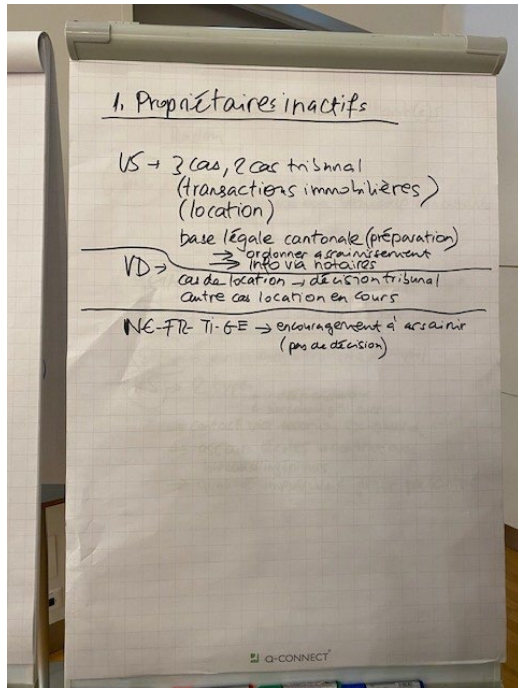 1. Propriétaires inactifs
VS → 3 cas, 2 cas tribunal
(transactions immobilières)
(location)
base légale cantonale (préparation)
⇒ ordonner assainissement
⇒ info via notaires
VD →
cas de location → décision tribunal
autre cas location en cours
NE-FR-TI-GE → encouragement à assainir
(pas de décision)
Q-CONNECT